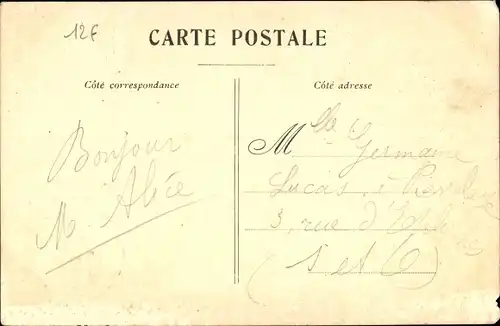 12€
CARTE POSTALE
Côté correspondance
Côté adresse
Bonjour
M Alice
Mlle Germaine
Lucas à
3, rue d'
(S et O)